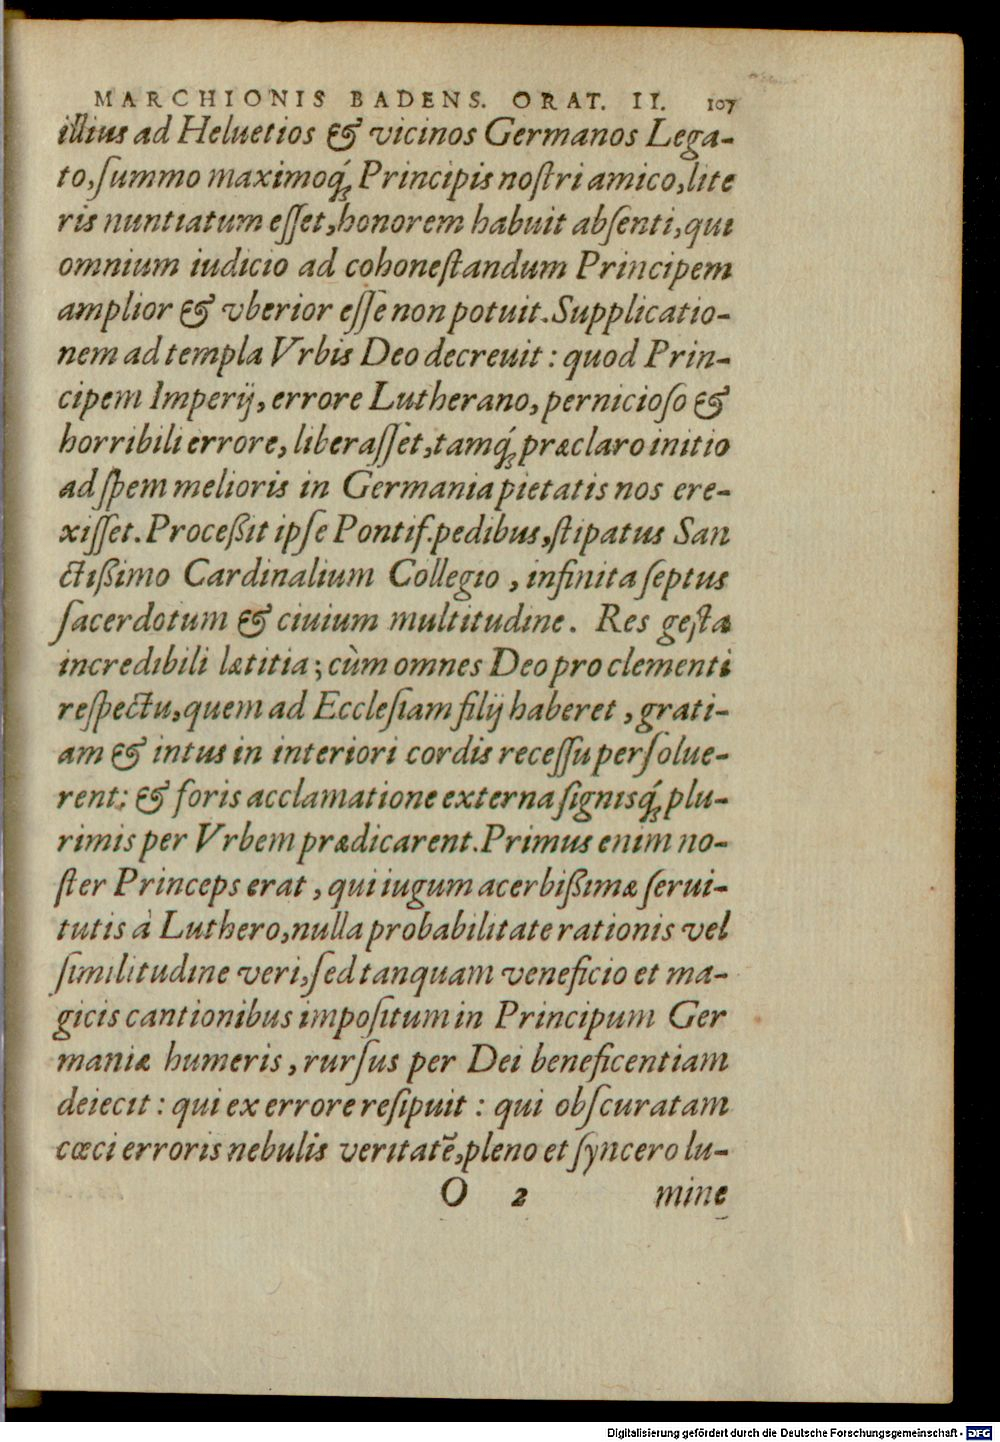 MARCHIONIS BADENS. ORAT. II. 107
illius ad Heluetios & vicinos Germanos Lega-
to, ſummo maximoq́; Principis noſtri amico, lite
ris nuntiatum eſſet, honorem habuit abſenti, qui
omnium iudicio ad cohoneſtandum Principem
amplior & vberior eſſe non potuit. Supplicatio-
nem ad templa Vrbis Deo decreuit: quod Prin-
cipem Imperij, errore Lutherano, pernicioſo &
horribili errore, liberaſſet, tamq́; præclaro initio
ad ſpem melioris in Germania pietatis nos ere-
xiſſet. Proceßit ipſe Pontif. pedibus, ſtipatus San
ctißimo Cardinalium Collegio, infinita ſeptus
ſacerdotum & ciuium multitudine. Res geſta
incredibili lætitia; cùm omnes Deo pro clementi
reſpectu, quem ad Eccleſiam filij haberet, grati-
am & intus in interiori cordis receſſu perſolue-
rent: & foris acclamatione externa ſignisq́; plu-
rimis per Vrbem prædicarent. Primus enim no-
ſter Princeps erat, qui iugum acerbißimæ ſerui-
tutis à Luthero, nulla probabilitate rationis vel
ſimilitudine veri, ſed tanquam veneficio et ma-
gicis cantionibus impoſitum in Principum Ger
maniæ humeris, rurſus per Dei beneficentiam
deiecit: qui ex errore reſipuit: qui obſcuratam
cœci erroris nebulis veritatē, pleno et ſyncero lu-
O 2 mine
Digitalisierung gefördert durch die Deutsche Forschungsgemeinschaft - DFG